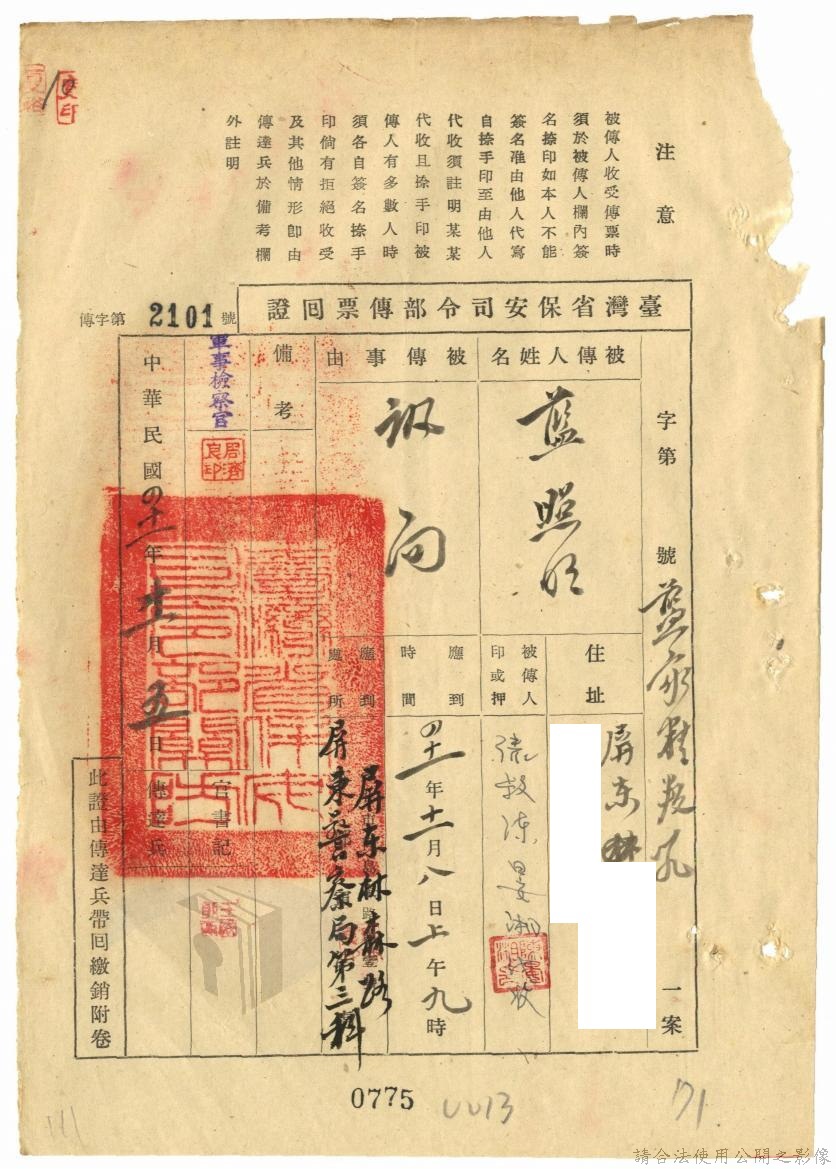 注意
被傳人收受傳票時
須於被傳人欄內簽
名捺印如本人不能
簽名准由他人代寫
自捺手印至由他人
代收須註明某某
代收且捺手印被
傳人有多數人時
須各自簽名捺手
印倘有拒絕收受
及其他情形卽由
傳達兵於備考欄
外註明
臺灣省保安司令部傳票回證
傳字第 2101 號
字第 號
一案
被傳人姓名
藍照明
住址
屏东林
被傳人
印或押
被傳事由
訊问
應到
時間
四十一年十一月八日上午九時
應到
處所
屏东林森路
屏東警察局第三科
備考
官書記
傳達兵
軍事檢察官
中華民國四十一年十一月五日
此證由傳達兵帶回繳銷附卷
0775
0013
71
請合法使用公開之影像